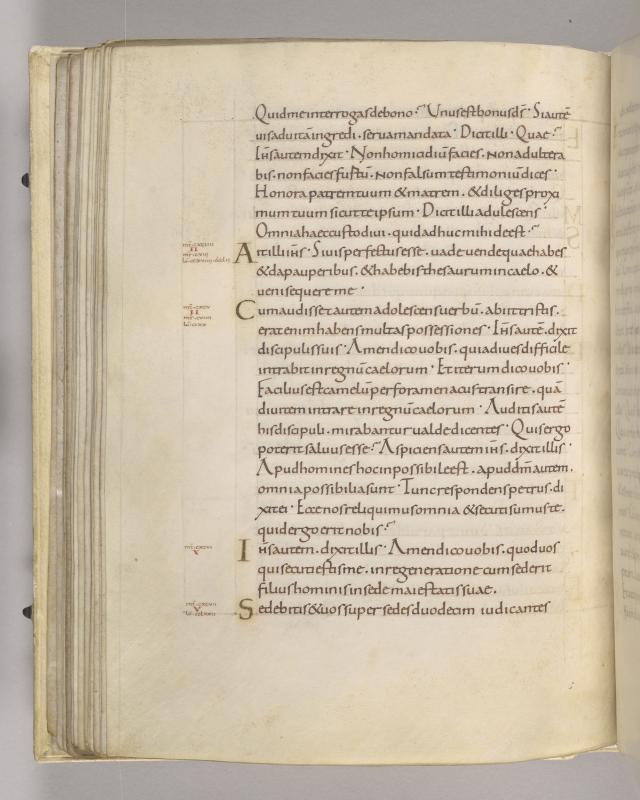 Quid me interrogas de bono · Unus est bonus ds̄ · Si autē
uis ad uitā ingredi · serua mandata · Dicit illi · Quae ·
Ih̄s autem dixit · Non homicidiū facies · non adultera
bis · non facies furtū · Non falsum testimoniū dices ·
Honora patrem tuum & matrem · & diliges proxi
mum tuum sicut te ipsum · Dicit illi adulescens ·
Omnia haec custodiui · quid adhuc mihi deest ·
Ait illi ih̄s · Si uis perfectus esse · uade uende quae habes
& da pauperibus · & habebis thesaurum in caelo · &
ueni sequere me ·
Cum audisset autem adolescens uerbū · abiit tristis ·
erat enim habens multas possessiones · Ih̄s autē · dixit
discipulis suis · Amen dico uobis · quia diues difficile
intrabit in regnū caelorum · Et iterum dico uobis ·
Facilius est camelū per foramen acus transire · quā
diuitem intrare in regnū caelorum · Auditis autē
his discipuli · mirabantur ualde dicentes · Quis ergo
poterit saluus esse · Aspiciens autem ih̄s · dixit illis ·
Apud homines hoc inpossibile est · apud dm̄ autem ·
omnia possibilia sunt · Tunc respondens petrus · di
xit ei · Ecce nos reliquimus omnia & secuti sumus te ·
quid ergo erit nobis ·
Ih̄s autem · dixit illis · Amen dico uobis · quod uos
qui secuti estis me · in regeneratione cum sederit
filius hominis in sede maiestatis suae ·
Sedebitis & uos super sedes duodecim iudicantes